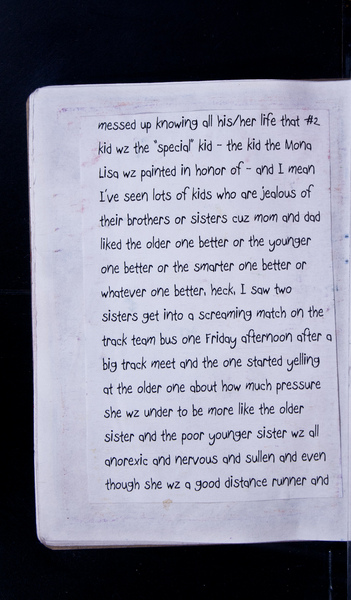 messed up knowing all his/her life that #2
kid wz the "special" kid - the kid the Mona
Lisa wz painted in honor of - and I mean
I've seen lots of kids who are jealous of
their brothers or sisters cuz mom and dad
liked the older one better or the younger
one better or the smarter one better or
whatever one better, heck, I saw two
sisters get into a screaming match on the
track team bus one Friday afternoon after a
big track meet and the one started yelling
at the older one about how much pressure
she wz under to be more like the older
sister and the poor younger sister wz all
anorexic and nervous and sullen and even
though she wz a good distance runner and